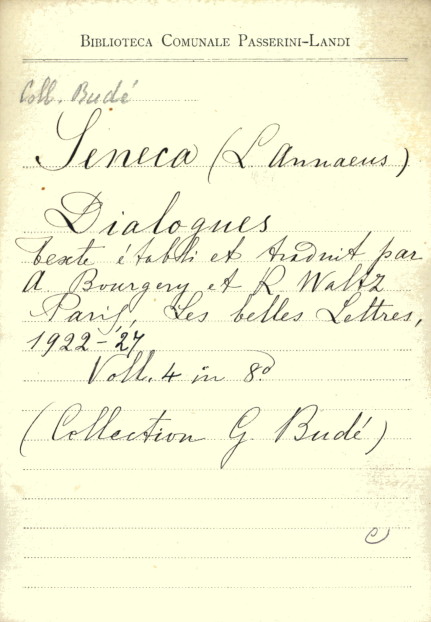 BIBLIOTECA COMUNALE PASSERINI-LANDI
Coll. Budé
Seneca (L. Annaeus)
Dialogues
texte établi et traduit par
A. Bourgery et R. Waltz
Paris, Les belles Lettres,
1922-27
Voll. 4 in 8º
(Collection G. Budé)